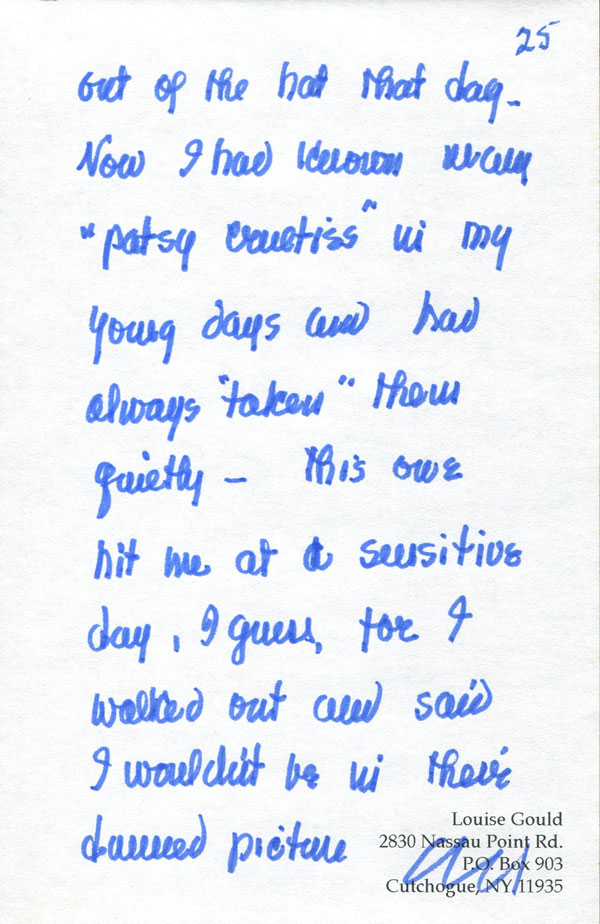 25
out of the hat that day -
Now I had known many
"patsy Curtiss" in my
young days and had
always "taken" them
quietly - this one
hit me at a sensitive
day, I guess, for I
walked out and said
I wouldn't be in their
damned picture and
Louise Gould
2830 Nassau Point Rd.
P.O. Box 903
Cutchogue, NY 11935